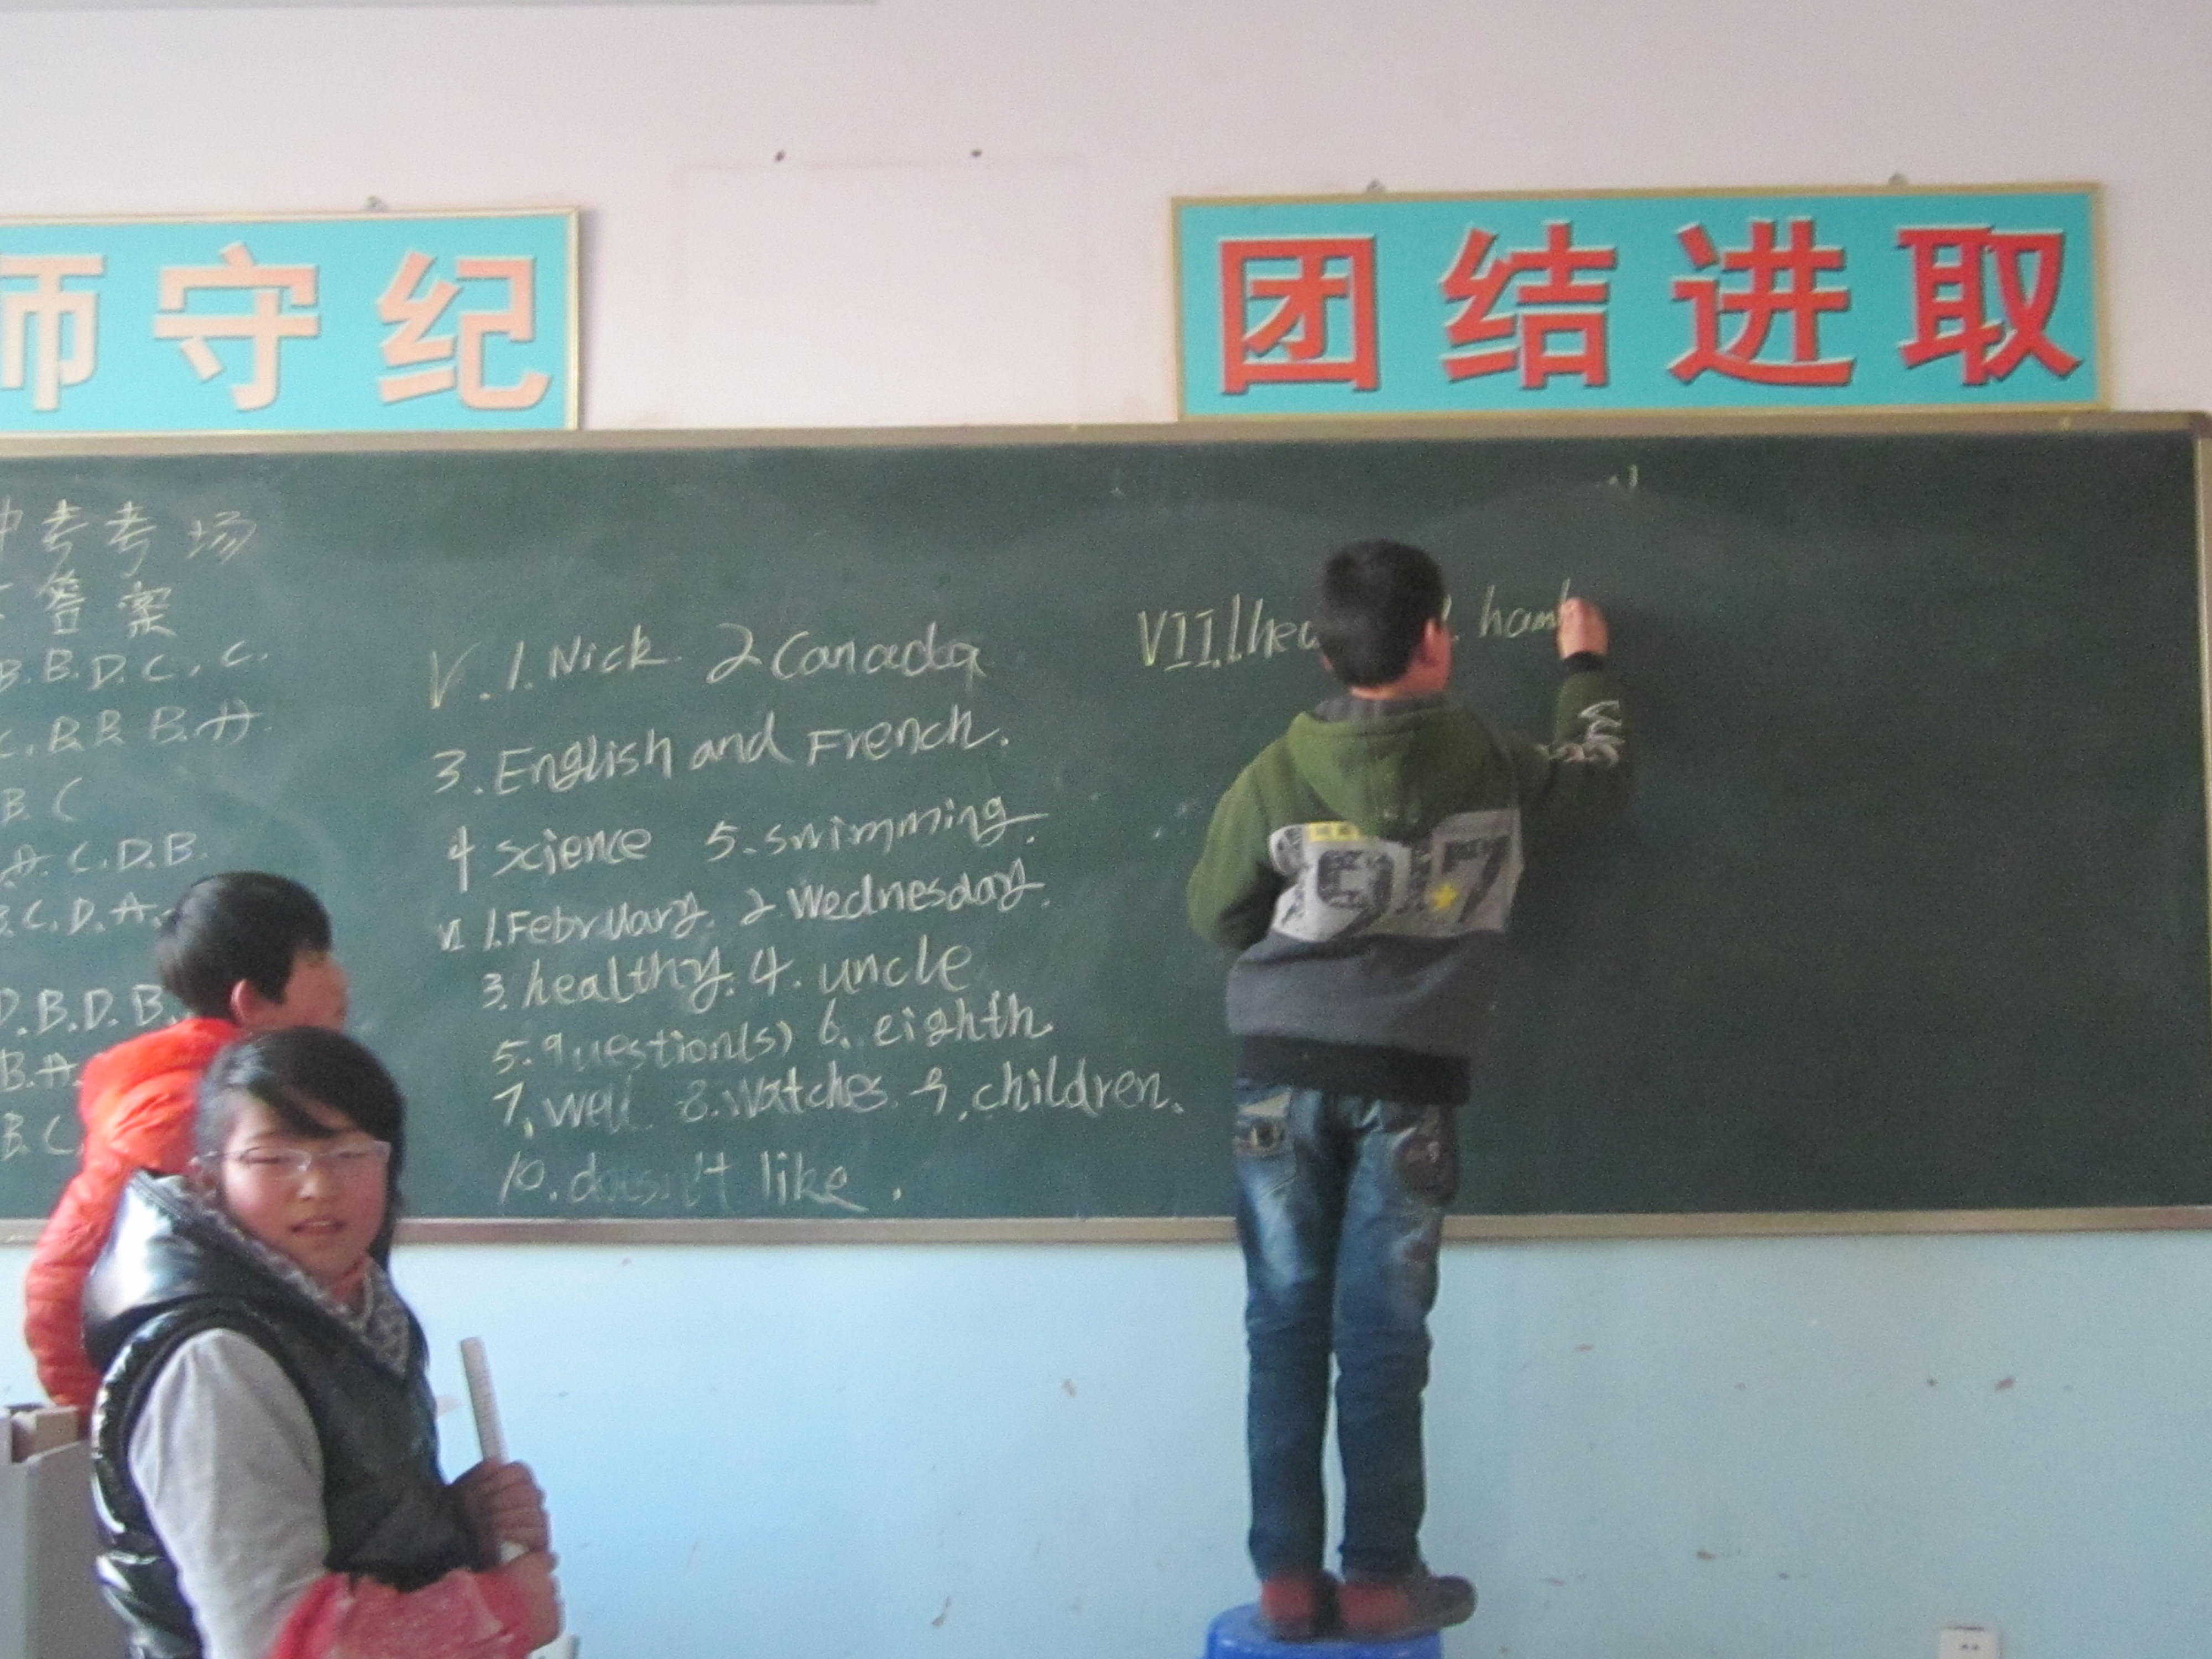 师守纪
团结进取
考考场
答案
B.B.D.C.C.
C.B.B.B.A.
B.C
A.C.D.B.
B.C.D.A.
D.B.D.B.
B.A.
B.C
V.1.Nick 2 Canada
3.English and French.
4 science 5.swimming.
VI 1.February. 2 Wednesday.
3.healthy. 4. uncle
5.question(s) 6. eighth
7.well 8.watches 9.children.
10.doesn't like.
VII.1.
97